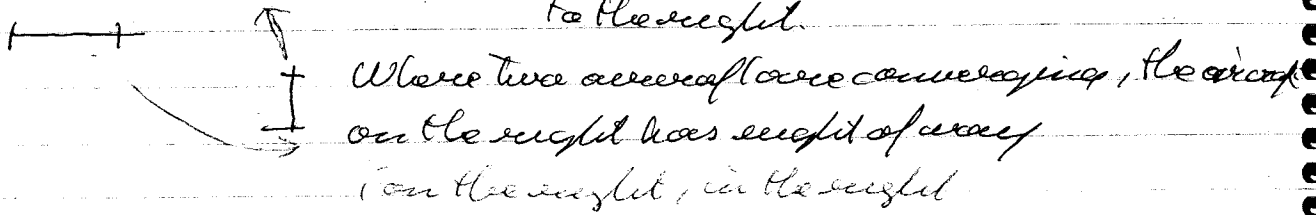 to the right.
Where two aircraft are converging, the aircraft
on the right has right of way
(on the right, in the right